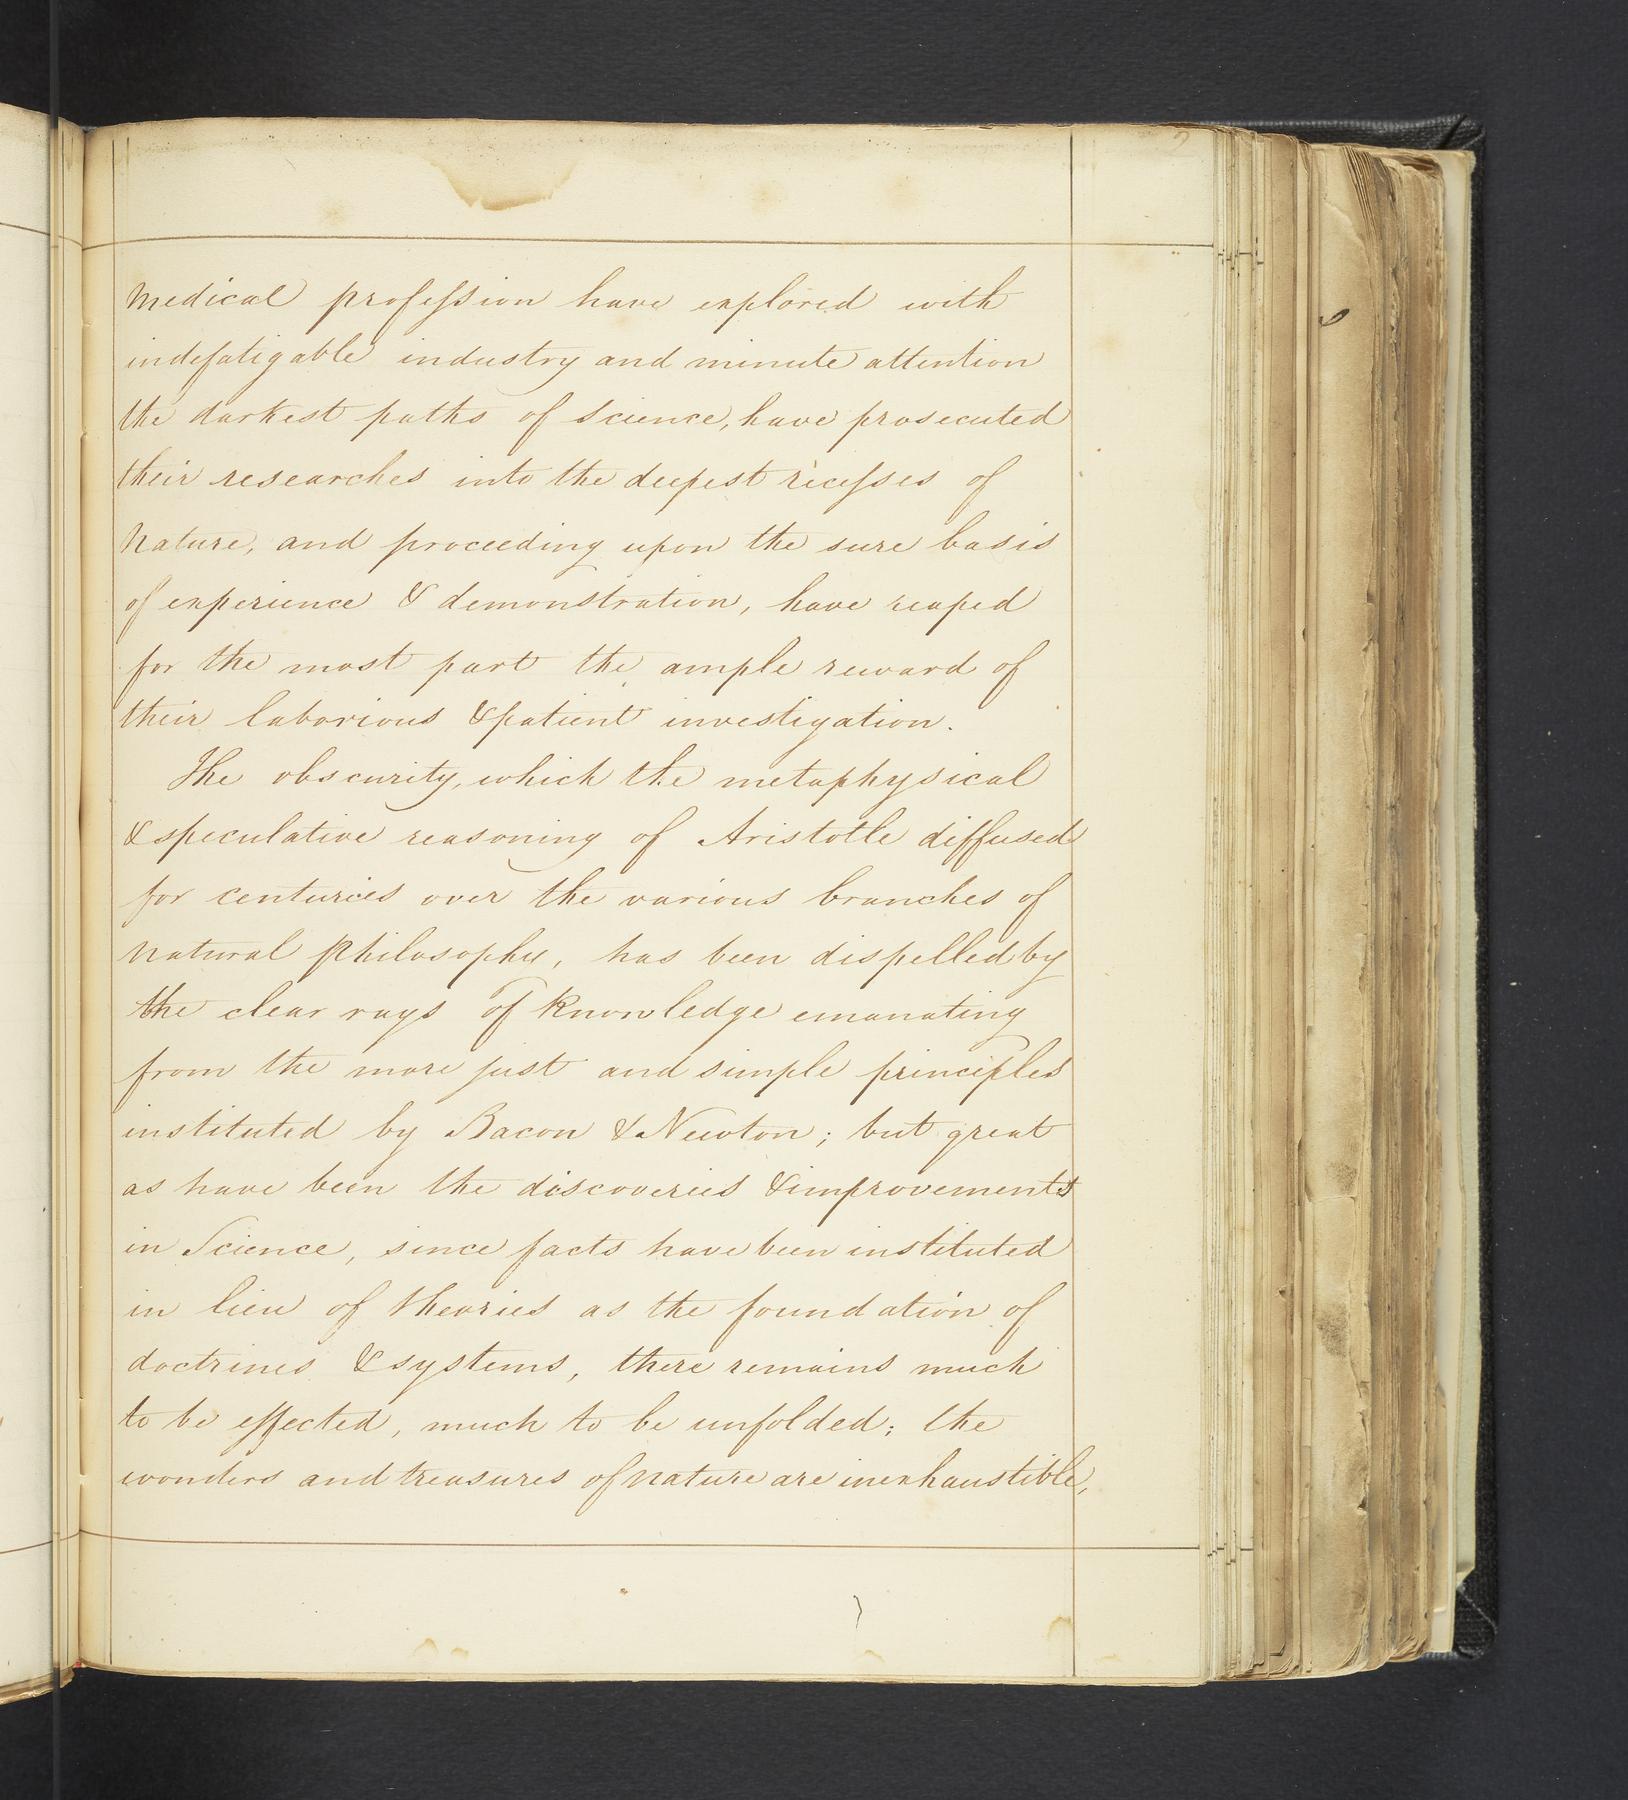 2
medical profession have explored with
indefatigable industry and minute attention
the darkest paths of science, have prosecuted
their researches into the deepest recesses of
nature, and proceeding upon the sure basis
of experience & demonstration, have reaped
for the most part the ample reward of
their laborious & patient investigation.
The obscurity, which the metaphysical
& speculative reasoning of Aristotle diffused
for centuries over the various branches of
natural philosophy, has been dispelled by
the clear rays of knowledge emanating
from the more just and simple principles
instituted by Bacon & Newton; but great
as have been the discoveries & improvements
in Science, since facts have been instituted
in lieu of theories as the foundation of
doctrines & systems, there remains much
to be effected, much to be unfolded; the
wonders and treasures of nature are inexhaustible,